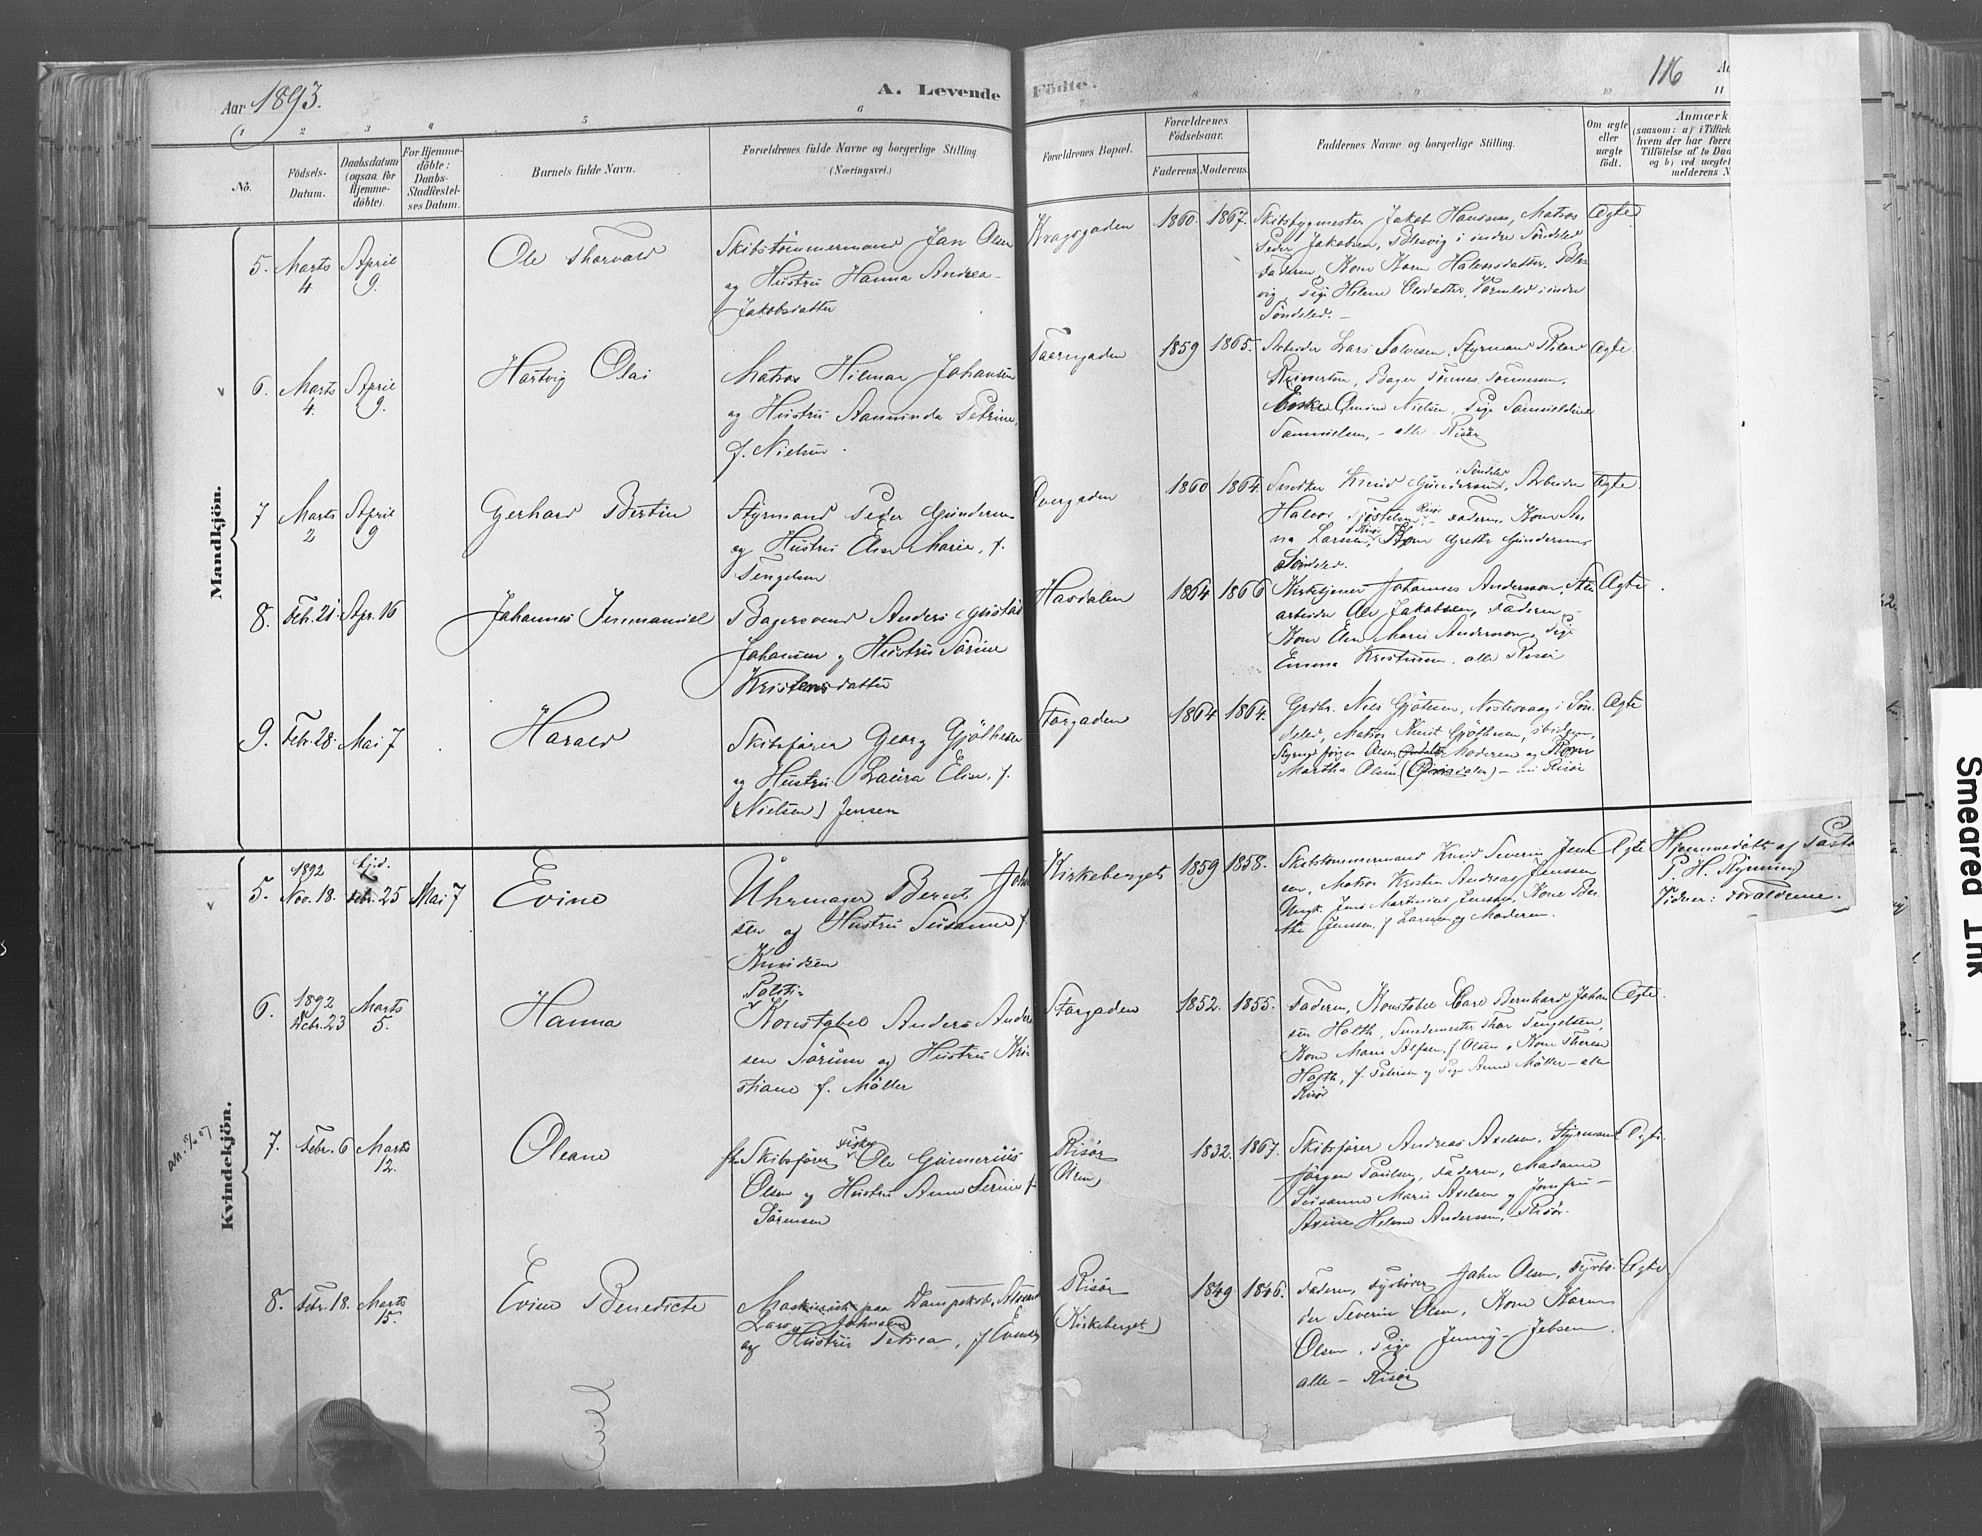 Aar 1893.
A. Levende Födte.
116
1 2 3 4 5 6 8 9 10 11
No.
Födsels-
Datum.
Daabsdatum
(ogsaa for
Hjemme-
döbte).
For Hjemme-
döbte:
Daabs-
Stadfæstel-
ses Datum.
Barnets fulde Navn.
Forældrenes fulde Navne og borgerlige Stilling
(Næringsvei.)
Forældrenes Bopæl.
Forældrenes
Födselsaar.
Faderens. Moderens.
Faddernes Navne og borgerlige Stilling.
Om ægte
eller
uægte
födt.
Anmærk
(saasom: a) i Tilfæld
hvem der har forre
Tilföielse af to Daa
og b) ved uægtef
melderens N
Mandkjön.
5. Marts 4 April 9. Ole Thorvald
Skibstömmermand Jan Olsen
og Hustru Hanna Andrea
Jakobsdatter
Kragsgaden 1860. 1867.
Skibsbygmester Jakob Hansen, Matros
Peder Jakobsen, Blesvig i indre Söndeled
Faderen, Kone Karen Halvorsdatter, Bles
vig, Pige Helene Olsdatter, i indre
Söndeled. –
Ægte
6. Marts 4. April 9. Hartvig Olai
Matros Hilmar Johansen
og Hustru Aanunda Petrine,
f. Nielsen.
Taarngaden 1859 1865.
Arbeider Lars Salvesen, Styrmand Rikard
Reinertsen, Bager Tönnes Tönnesen,
Enke Amine Nielsen, Pige Samueline
Samuelsen, – alle Risör
Ægte
7 Marts 2 April 9 Gerhard Bertin
Styrmand Peder Gundersen
og Hustru Elen Marie, f.
Tengelsen
Övergaden 1860 1864.
Snedker Knud Gundersen, i Söndeled, Arbeider
Halvor Risör – Faderen, Kone An
na Larsen, Risör, Kone Grethe Gundersen
Söndeled.
Ægte
8. Feb. 21. Apr. 16 Johannes Immanuel
Bagersvend Anders Gustav
Johansen og Hustru Sörine
Kristensdatter
Hasdalen 1864 1866
Kirketjener Johannes Anderson, Sten
arbeider Ole Jakobsen, Faderen,
Kone Elen Marie Anderson, Pige
Emma Kristensen, alle Risör
Ægte
9. Febr. 28. Mai 7 Harald
Skibsförer Georg Gjöthesen
og Hustru Laura Elise, f.
(Nielsen) Jensen
Storgaden 1864 1864.
Grdbr. Nels Gjötesen, i Sön-
deled, Matros Knut Gjöthesen, ibidem,
Styrmd Jörgen Olsen, Moderen og Kone
Martha Olsen – Risör
Ægte
Kvindekjön.
5. 1892 Nov. 18. Febr. 25 Mai 7 Evine
Uhrmager Bernt John
sen og Hustru Susanne f.
Knudsen
Kirkeberget 1859 1858.
Skibstömmermand Knud Severin Jens
sen, Matros Kristen Andreas Jenssen
Ungk. Jens Martinius Jenssen, Kone Ber
the Jenssen, f. Larsen og Moderen.
Ægte
Hjemmedöbt af Pastor
P. H. Rymund
Vidner: Forældrene.
6. 1892 Febr. 23 Marts 5. Hanna
Politi-
Konstabel Anders Ander
sen Sörum og Hustru Kri
stiane f. Möller
Storgaden 1852. 1855.
Faderen, Konstabel Carl Bernhard Johan
sen Holth, Smedemester Thor Tengelsen,
Kone Maren Alfsen, f. Olsen, Kone Therese
Holth, f. Petersen og Pige Anne Möller – alle
Risör
Ægte.
7. Febr. 6 Marts 12. Oleane
fh. Skibsförer Fisker Ole Gunnerius
Olsen og Hustru Anne Serine f.
Sörensen
Risör
1832. 1867.
Skibsförer Andreas Axelsen, Styrmand
Jörgen Paulsen, Faderen, Madame
Susanne Marie Axelsen og Jomfru –
Axine Helene Andersen, Risör.
Ægte
8. Febr. 18. Marts 15. Evine Benedicte
Maskinist paa Dampskib,
Lars Johnsen
og Hustru Petrea, f.
Risör
(Kirkeberget)
1849 1846.
Faderen, Fyrböder John Olsen, Fyrbö-
der Severin Olsen, Kone Karen
Olsen, Pige Jenny Jebsen
alle – Risör
Ægte
Smeared Ink